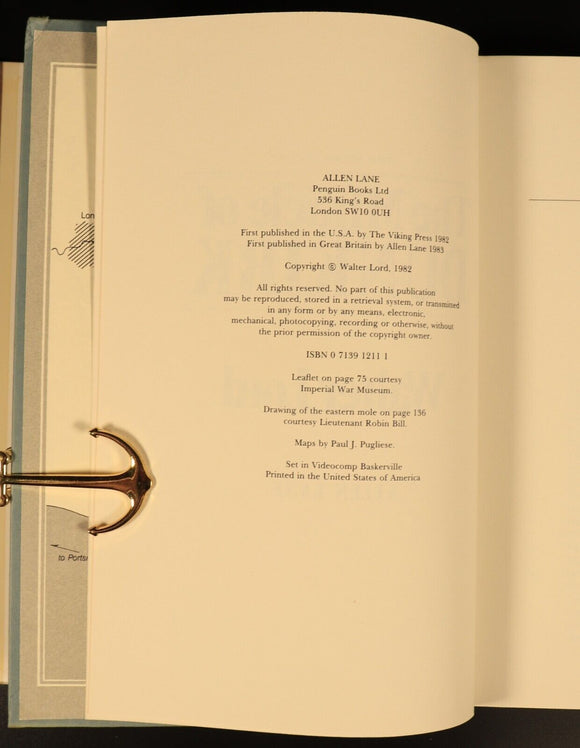 ALLEN LANE
Penguin Books Ltd
536 King's Road
London SW10 0UH
First published in the U.S.A. by The Viking Press 1982
First published in Great Britain by Allen Lane 1983
Copyright © Walter Lord, 1982
All rights reserved. No part of this publication
may be reproduced, stored in a retrieval system, or transmitted
in any form or by any means, electronic,
mechanical, photocopying, recording or otherwise, without
the prior permission of the copyright owner.
ISBN 0 7139 1211 1
Leaflet on page 75 courtesy
Imperial War Museum.
Drawing of the eastern mole on page 136
courtesy Lieutenant Robin Bill.
Maps by Paul J. Pugliese.
Set in Videocomp Baskerville
Printed in the United States of America
Lon
to Ports